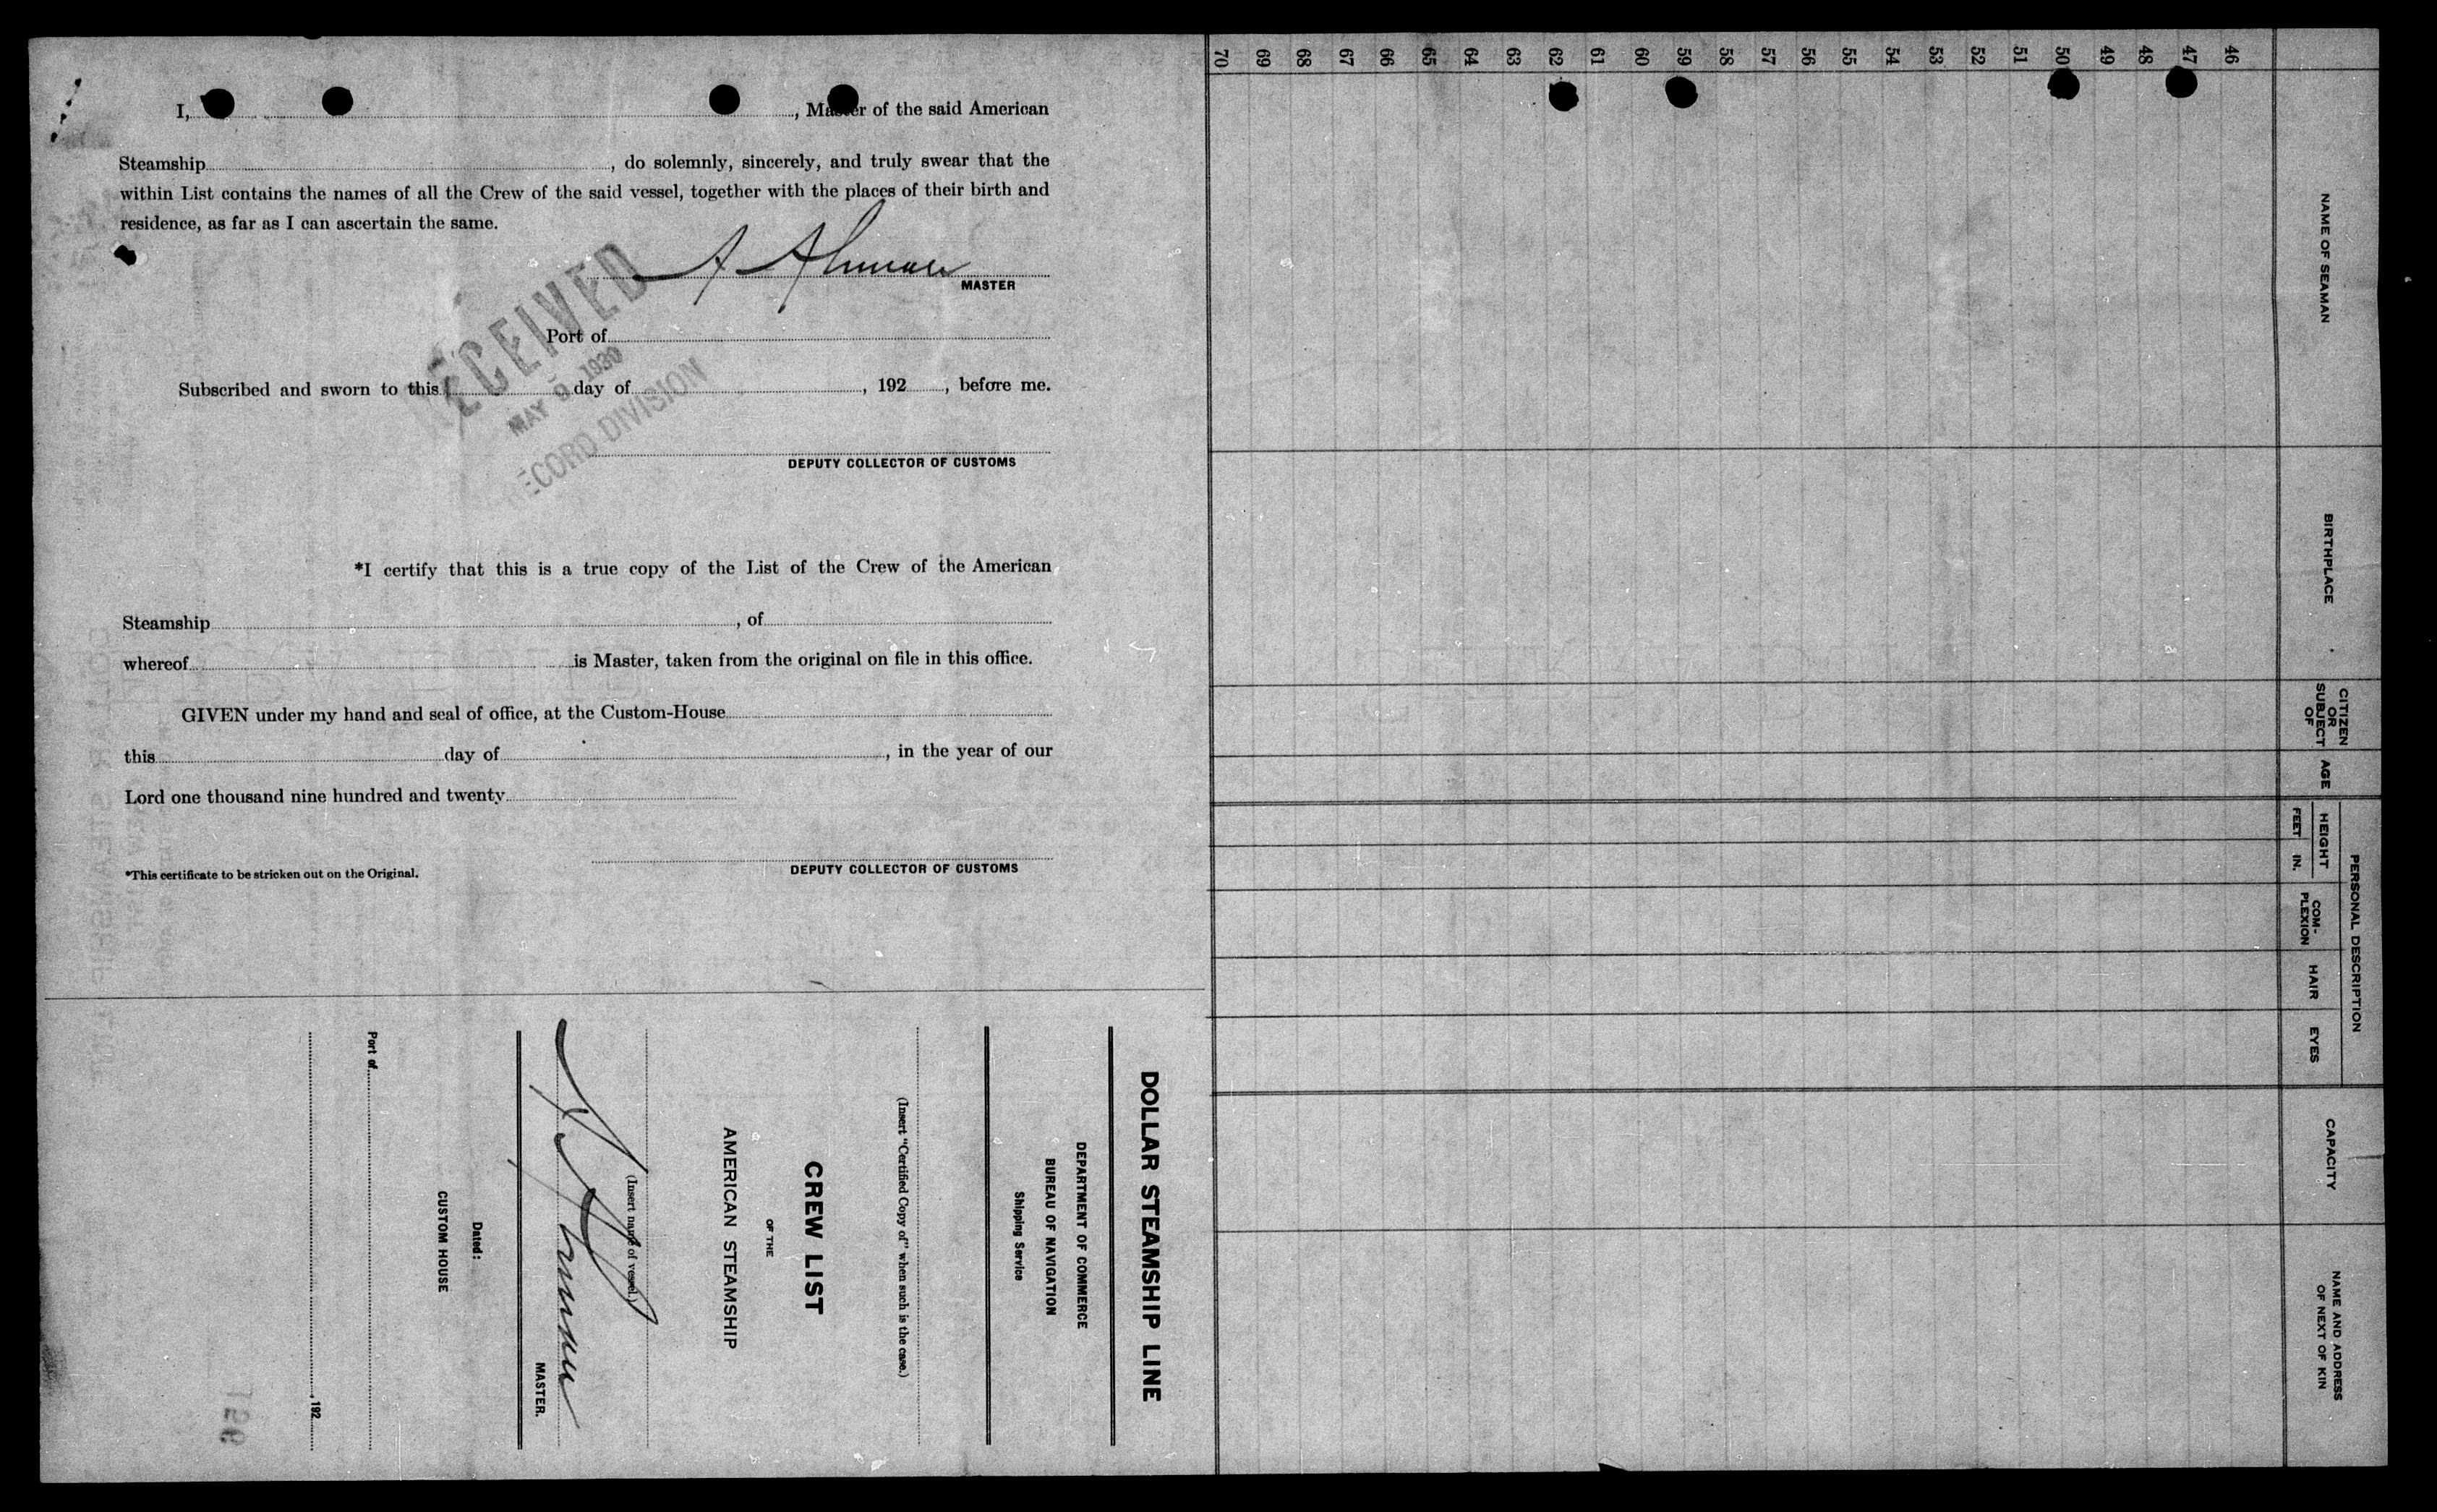 I, , Master of the said American
Steamship , do solemnly, sincerely, and truly swear that the
within List contains the names of all the Crew of the said vessel, together with the places of their birth and
residence, as far as I can ascertain the same.
MASTER
RECEIVED
MAY 9 1930
RECORD DIVISION
Port of
Subscribed and sworn to this day of , 192 , before me.
DEPUTY COLLECTOR OF CUSTOMS
*I certify that this is a true copy of the List of the Crew of the American
Steamship , of
whereof is Master, taken from the original on file in this office.
GIVEN under my hand and seal of office, at the Custom-House
this day of , in the year of our
Lord one thousand nine hundred and twenty
DEPUTY COLLECTOR OF CUSTOMS
*This certificate to be stricken out on the Original.
DOLLAR STEAMSHIP LINE
DEPARTMENT OF COMMERCE
BUREAU OF NAVIGATION
Shipping Service
(Insert "Certified Copy of" when such is the case.)
CREW LIST
OF THE
AMERICAN STEAMSHIP
(Insert name of vessel.)
MASTER.
Dated:
CUSTOM HOUSE
Port of
, 192
NAME OF SEAMAN
BIRTHPLACE
CITIZEN
OR
SUBJECT
OF
AGE
PERSONAL DESCRIPTION
HEIGHT
FEET
IN.
COM-
PLEXION
HAIR
EYES
CAPACITY
NAME AND ADDRESS
OF NEXT OF KIN
46
47
48
49
50
51
52
53
54
55
56
57
58
59
60
61
62
63
64
65
66
67
68
69
70